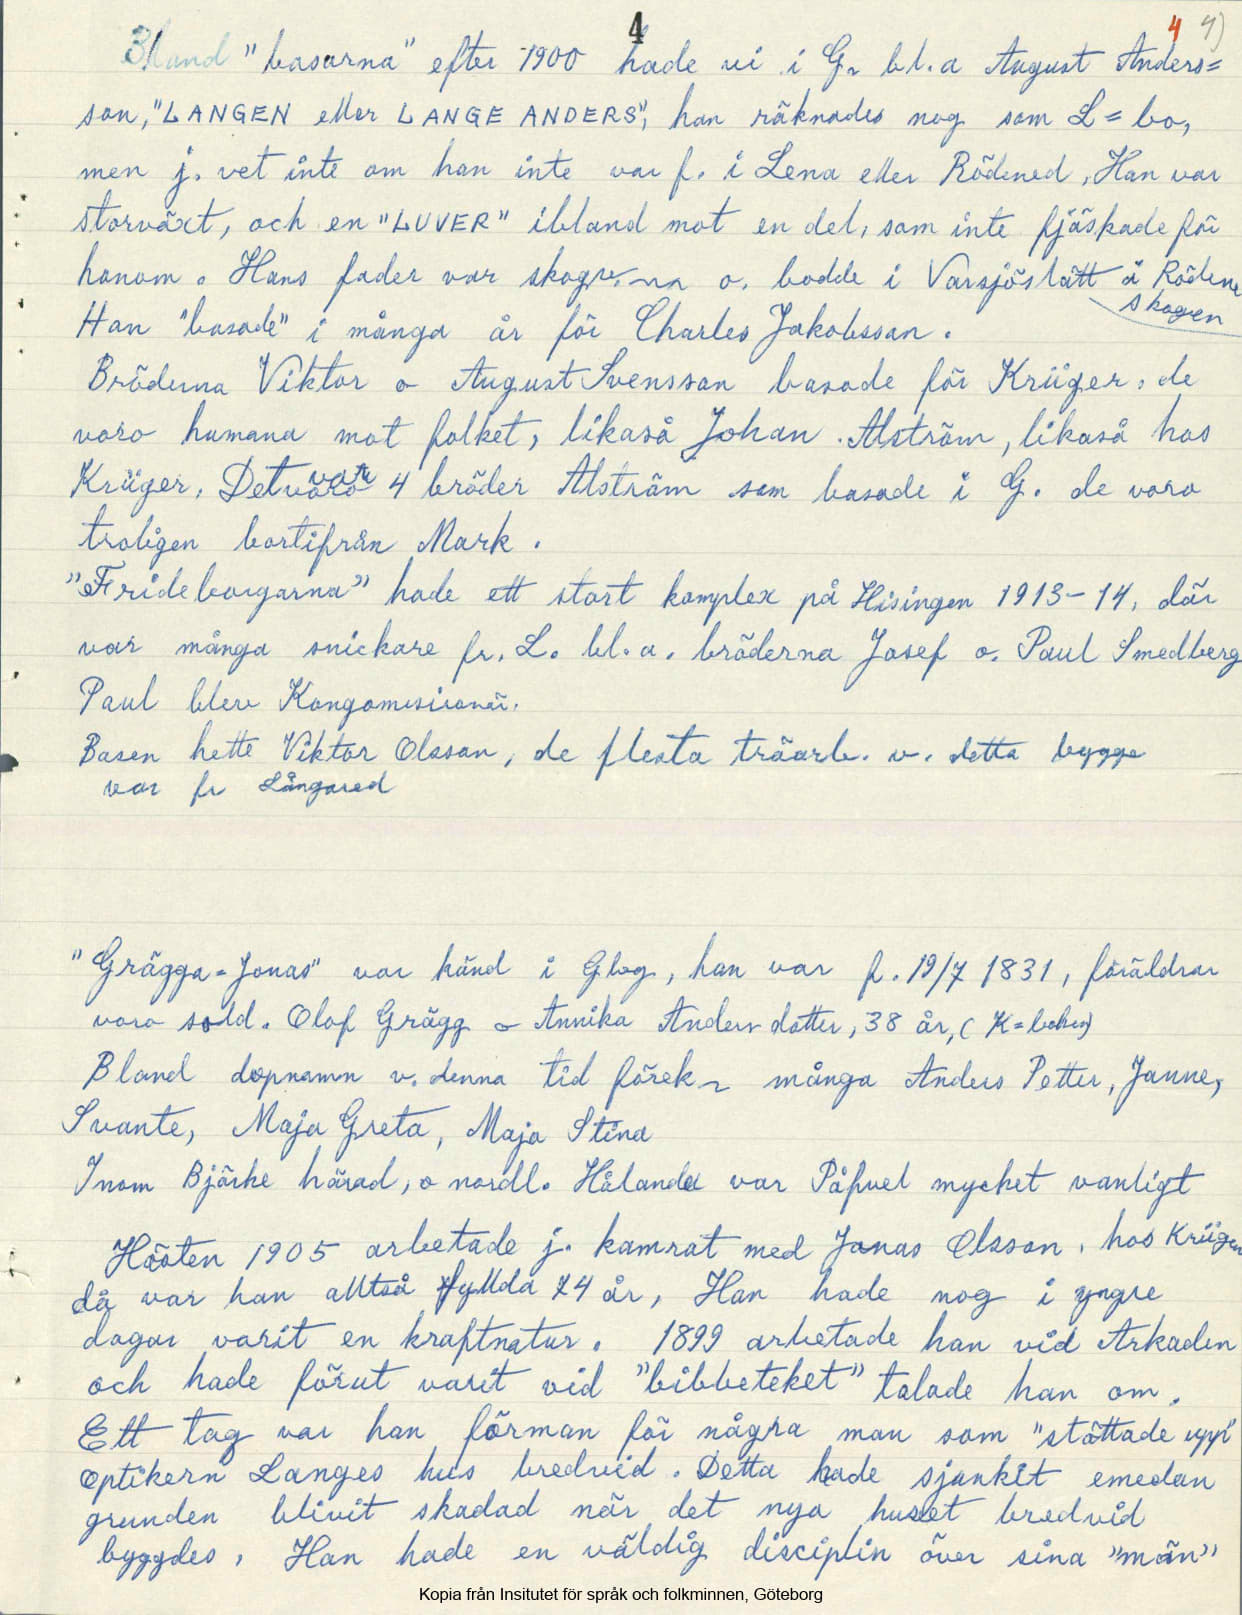 4
4 4)
Bland "basarna" efter 1900 hade vi i G. bl.a August Anders=
son, "LANGEN eller LANGE ANDERS", han räknades nog som L=bo,
men j. vet inte om han inte var f. i Lena eller Rödened, Han var
storväxt, och en "LUVER" ibland mot en del, som inte fjäskade för
honom. Hans fader var o. bodde i Varsjöslätt å Rödene
skogen
Han "basade" i många år för Charles Jakobsson.
Bröderna Viktor o August Svensson basade för Krüger, de
voro humana mot folket, likaså Johan Alström, likaså hos
Krüger, Det var 4 bröder Alström som basade i G. de voro
troligen bortifrån Mark.
"Frideborgarna" hade ett stort komplex på Hisingen 1913-14, där
var många snickare fr. L. bl.a. bröderna Josef o. Paul Smedberg
Paul blev Kongomissionär.
Basen hette Viktor Olsson, de flesta träarb. v. detta bygge
var fr Långared
"Grägga-Jonas" var känd i Gbog, han var f. 19/7 1831, föräldrar
voro sold. Olof Grägg o Annika Andersdotter, 38 år, (K=boken)
Bland dopnamn v. denna tid förek~ många Anders Petter, Janne,
Svante, Maja Greta, Maja Stina
Inom Bjärke härad, o nordl. Hålanda var Påfvel mycket vanligt
Hösten 1905 arbetade j. kamrat med Jonas Olsson, hos Krüger
då var han alltså fyllda 74 år, Han hade nog i yngre
dagar varit en kraftnatur. 1899 arbetade han vid Arkaden
och hade förut varit vid "bibbeteket" talade han om.
Ett tag var han förman för några man som "stöttade upp"
optikern Langes hus bredvid. Detta hade sjunkit emedan
grunden blivit skadad när det nya huset bredvid
byggdes, Han hade en väldig disciplin över sina "män"
Kopia från Insitutet för språk och folkminnen, Göteborg